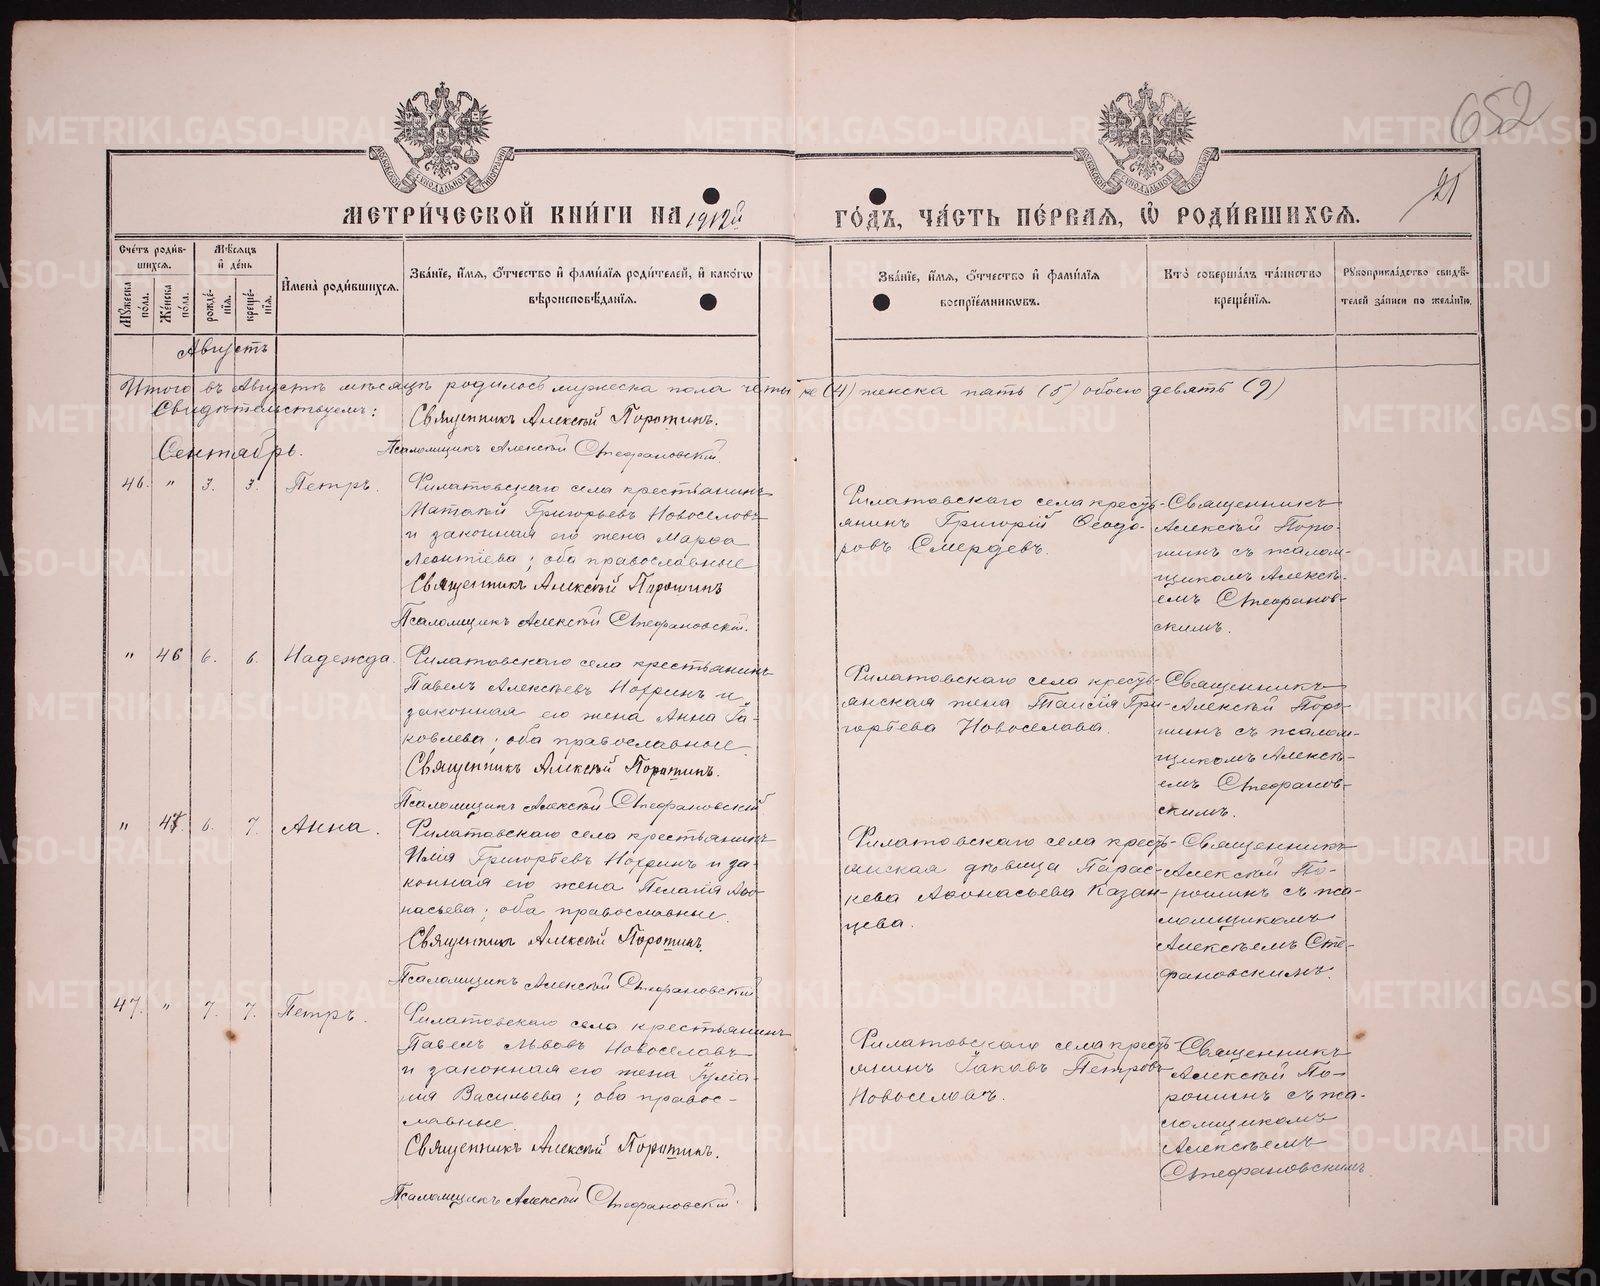 652
21
МОСКОВСКОЙ СѴНОДАЛЬНОЙ ТИПОГРАФІИ
МОСКОВСКОЙ СѴНОДАЛЬНОЙ ТИПОГРАФІИ
МЕТРИ́ЧЕСКОЙ КНИ́ГИ НА 1912й ГО́ДЪ, ЧА́СТЬ ПЕ́РВАЯ, Ѽ РОДИ́ВШИХСЯ.
Сче́тъ роди́в-
шихся.
Мꙋ́жеска по́ла.
Же́нска по́ла.
Мѣ́сяцъ и҆ де́нь
рожде́-
нїѧ.
креще́-
нїѧ.
И҆мена̀ роди́вшихся.
Зва́нїе, и҆́мѧ, ѻ҆́тчество и҆ фами́лїѧ роди́телей, и҆ како́гѡ
вѣроисповѣ́данїѧ.
Зва́нїе, и҆́мѧ, ѻ҆́тчество и҆ фами́лїѧ
воспрїе́мникѡвъ.
Кто̀ соверша́лъ та́инство
креще́нїѧ.
Рꙋкоприкла́дство свидѣ́-
телей за́писи по жела́нїю.
Августъ
Итого въ Августѣ мѣсяцѣ родилось мужеска пола четыре (4) женска пять (5) обоего девять (9)
Свидѣтельствуемъ:
Священникъ Алексѣй Порошинъ.
Псаломщикъ Алексѣй Стефановскій.
Сентябрь.
46. " 3. 3. Петръ.
Филатовскаго села крестьянинъ
Матѳей Григорьевъ Новоселовъ
и законная его жена Марѳа
Леонтіева; оба православные
Священникъ Алексѣй Порошинъ
Псаломщикъ Алексѣй Стефановскій.
Филатовскаго села кресть-
янинъ Григорій Ѳеодо-
ровъ Смердевъ.
Священникъ
Алексѣй Поро-
шинъ съ псалом-
щикомъ Алексѣ-
емъ Стефанов-
скимъ.
" 46 6. 6. Надежда.
Филатовскаго села крестьянинъ
Павелъ Алексѣевъ Нохринъ и
законная его жена Анна Іа-
ковлева; оба православные
Священникъ Алексѣй Порошинъ.
Псаломщикъ Алексѣй Стефановскій
Филатовскаго села кресть-
янская жена Таисія Гри-
горьева Новоселова.
Священникъ
Алексѣй Поро-
шинъ съ псалом-
щикомъ Алексѣ-
емъ Стефанов-
скимъ.
" 47. 6. 7. Анна.
Филатовскаго села крестьянинъ
Илія Григорьевъ Нохринъ и за-
конная его жена Пелагія Аѳо-
насьева; оба православные.
Священникъ Алексѣй Порошинъ.
Псаломщикъ Алексѣй Стефановскій
Филатовскаго села кресть-
янская дѣвица Парас-
кева Аѳонасьева Казан-
цева.
Священникъ
Алексѣй По-
рошинъ съ пса-
ломщикомъ
Алексѣемъ Сте-
фановскимъ
47. " 7. 7. Петръ.
Филатовскаго села крестьянинъ
Павелъ Львовъ Новоселовъ
и законная его жена Іуліа-
нія Васильева; оба правос-
лавные.
Священникъ Алексѣй Порошинъ.
Псаломщикъ Алексѣй Стефановскій.
Филатовскаго села кресть-
янинъ Іаковъ Петровъ
Новоселовъ.
Священникъ
Алексѣй По-
рошинъ съ пса-
ломщикомъ
Алексѣемъ
Стефановскимъ.
METRIKI.GASO-URAL.RU